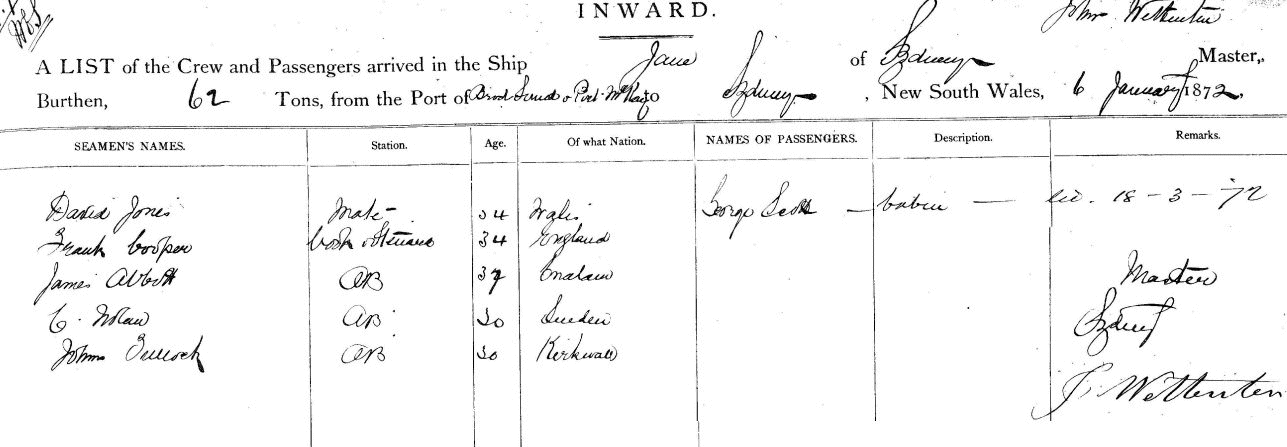 INWARD.
John Wettenten
A LIST of the Crew and Passengers arrived in the Ship Jane of Sydney Master,
Burthen, 62 Tons, from the Port of Broad Sound & Port to Sydney, New South Wales, 6 January 1872,
SEAMEN'S NAMES. Station. Age. Of what Nation. NAMES OF PASSENGERS. Description. Remarks.
David Jones Mate 34 Wales George Scott — Cabin — 18-3-72
Frank Cooper Cook & Steward 34 England
James Abbott AB 37 Master
C. Nolan AB 30 Sweden Sydney
John AB 30 Kirkwall
J Wettenten